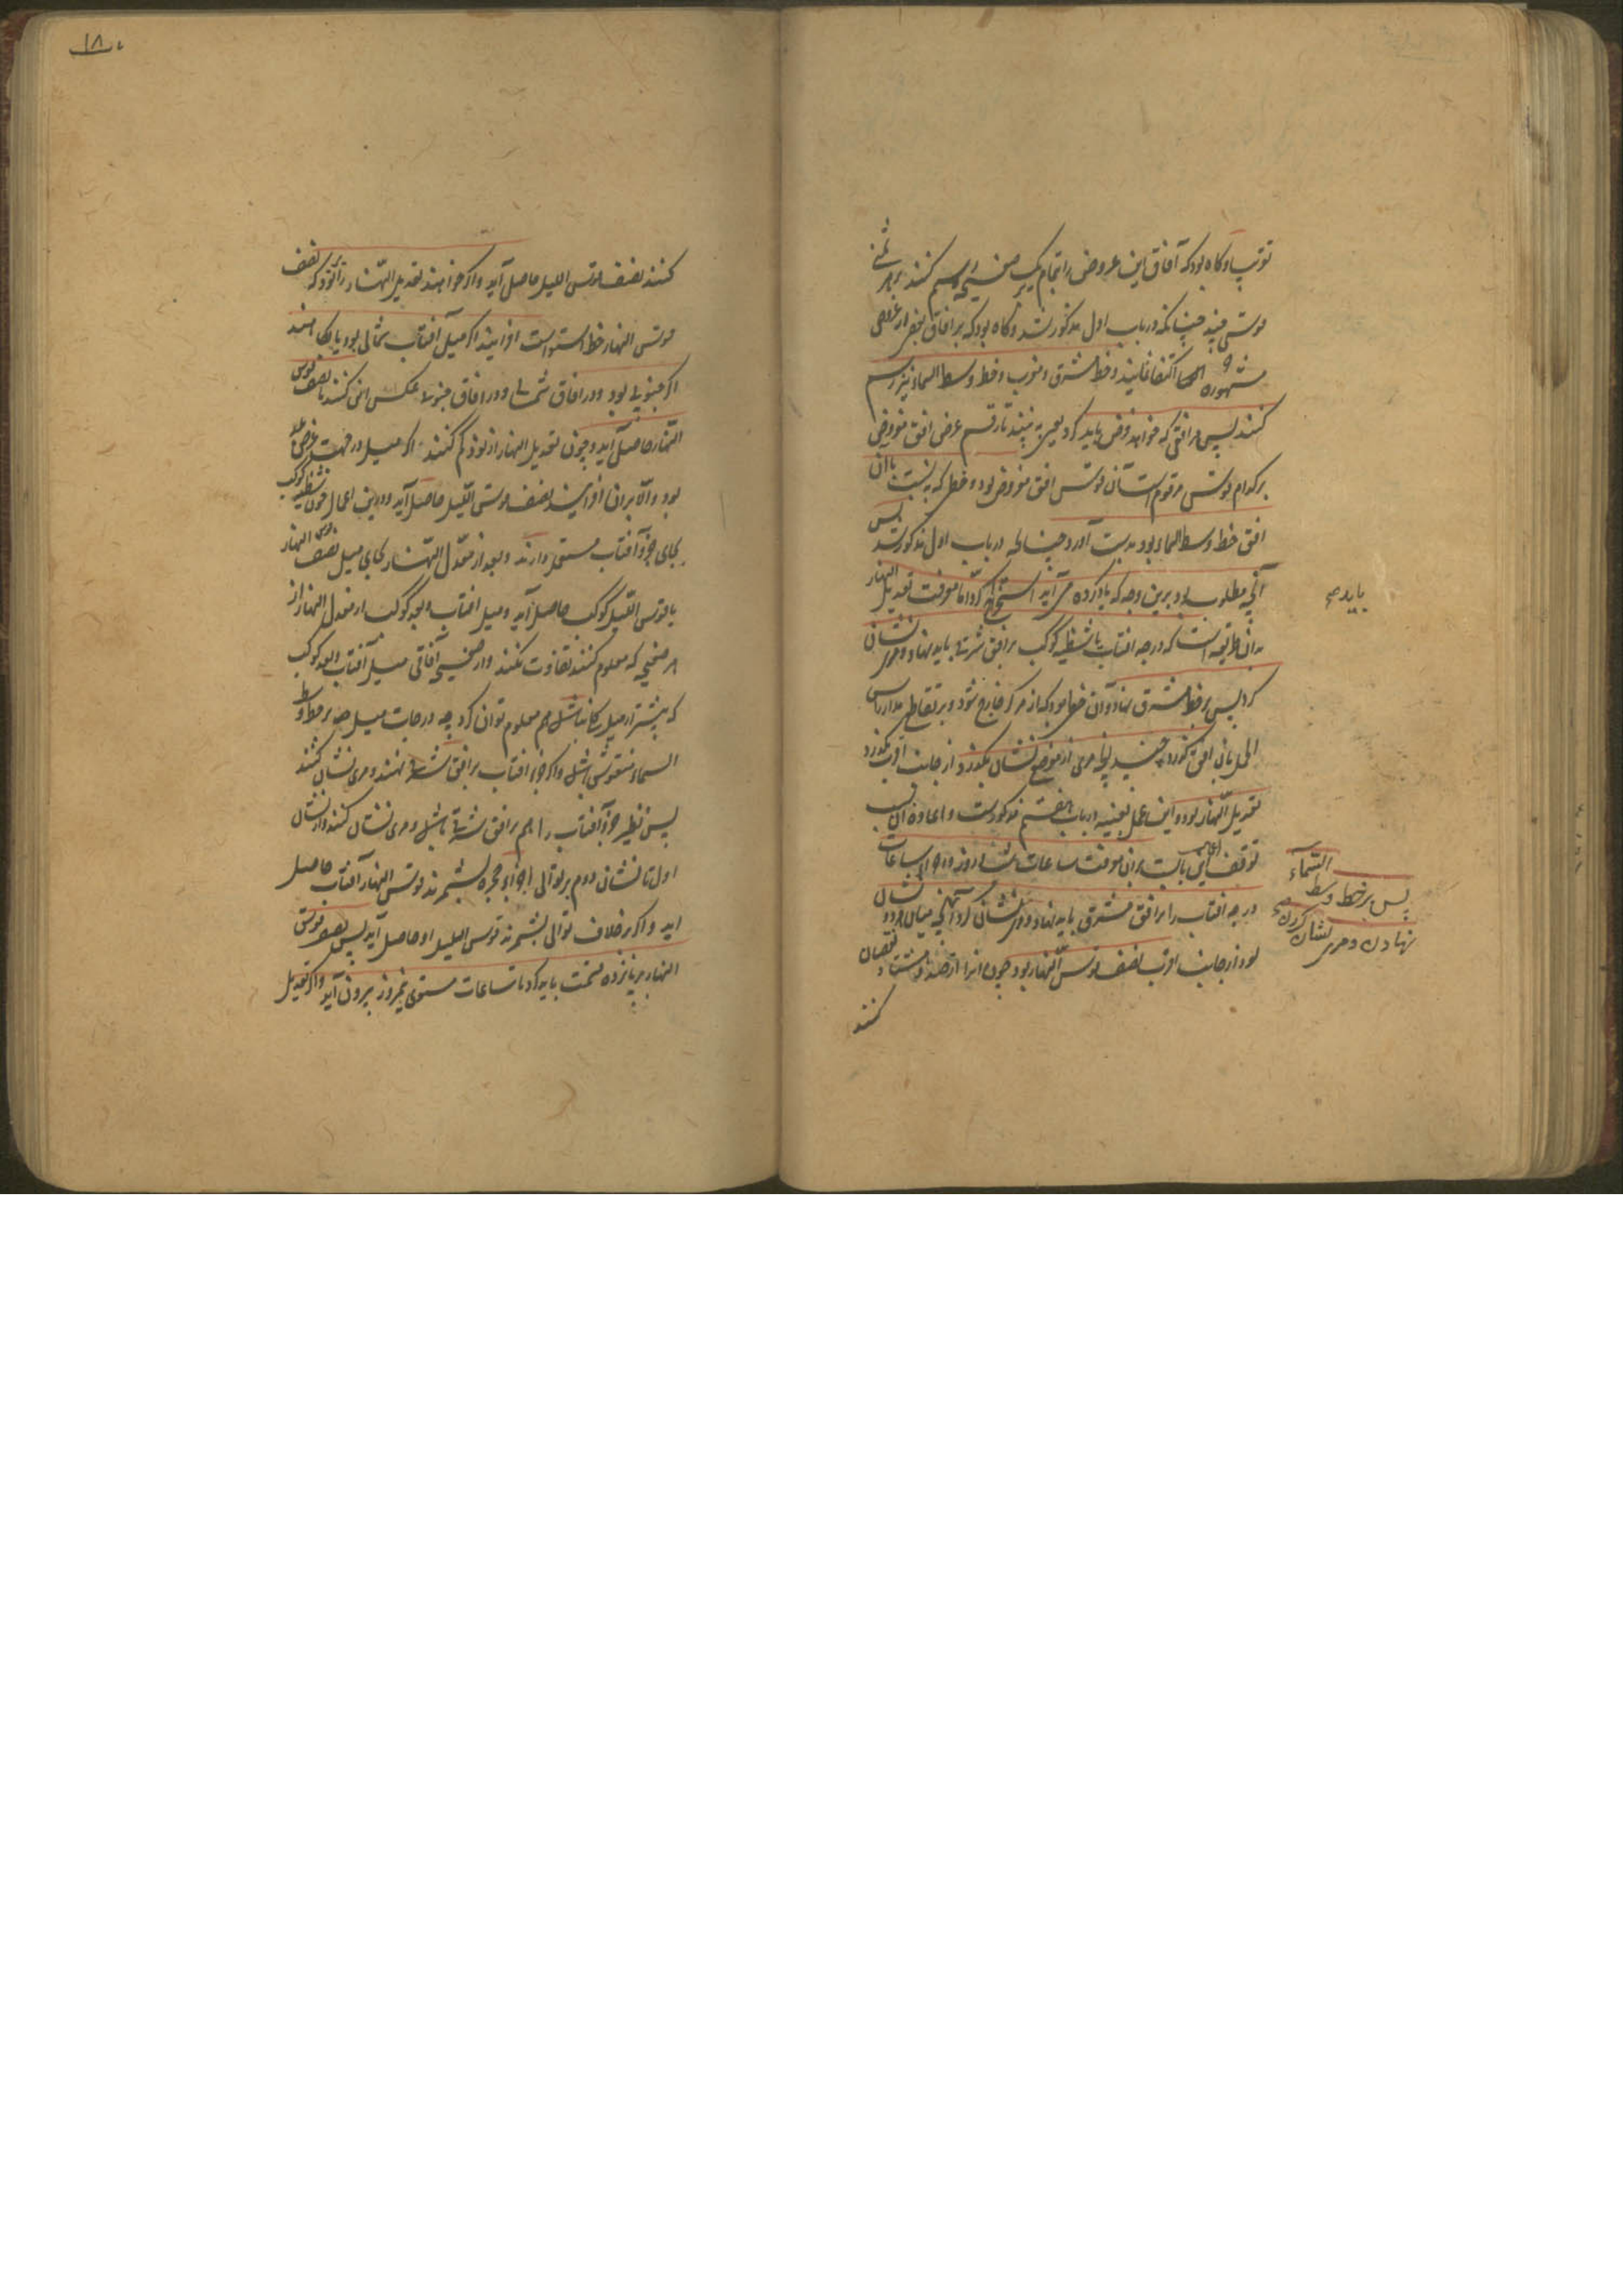 قوتب و گاه بود که آفاق این عروض را بتمام بر یک صفیحه رسم کنند بر هر ثمنی
قوسی چند چنانکه در باب اول مذکور شد و گاه بود که بر آفاق بعضی از عرض
مشهوره اکتفا نمایند و خط مشرق و مغرب و خط وسط السماء نیز رسم
کنند پس هر افقی که خواهد فرض باید کرد یعنی به بینند تا رقم عرض افق مفروض
بر کدام قوس مرقوم است آن قوس افق مفروض بود و خطی که به نسبت با آن
افق خط وسط السماء بود بدست آورد چنانکه در باب اول مذکور شد پس
آنچه مطلوب بود برین وجه که یاد کرده می آید استخراج کرد اما معرفت تعدیل النهار
بدان طریقه است که درجه آفتاب یا شظیه کوکب بر افق شرقی باید نهاد و مری نشان
کرد پس بر خط مشرق نهاد و آن خطی بود که از مرکز خارج شود و بر تقاطع مدار راس
الحمل بان افق گذرد چند آنچه مری از موضع نشان بگذرد از جانب اقرب
تعدیل النهار بود و این عمل بعینه در باب هفتم مذکورست و اعاده آن بسبب
توقف اعمال این باب است بر آن معرفت ساعات شبانروز و اجزاء ساعات
درجه آفتاب را بر افق مشرق باید نهاد و مری نشان کرد آنچه میان هر دو نشان
بود از جانب اقرب نصف قوس النهار بود چون آنرا از صد و هشتاد نقصان
کنند
باید صح
السماء
پس بر خط وسط
نهادن و مری نشان کردن صح
۱۸
کنند نصف قوس اللیل حاصل آید و اگر خواهند تعدیل النهار را بر نود که نصف
قوس النهار خط استواست افزایند اگر میل آفتاب شمالی بود یا بکاهند
اگر جنوبی بود و در آفاق شمالی و در آفاق جنوبی عکس این کنند تا نصف قوس
النهار حاصل آید و چون تعدیل النهار از نود کم کنند اگر میل در جهت عرض بلد
بود و الا بران افزایند نصف قوس اللیل حاصل آید و درین اعمال چون شظیه کوکب
بجای جزو آفتاب مستعمل دارند و بعد از معدل النهار بجای میل نصف قوس النهار
یا قوس اللیل کوکب حاصل آید و میل آفتاب و بعد کوکب از معدل النهار از
هر صفیحه که معلوم کنند تفاوت نکند و از صفیحه آفاقی میل آفتاب و بعد کوکب
که بیشتر از میل کلی نباشد هم معلوم توان کرد چه درجات میل بر خط وسط
السماء منقوش باشد و اگر جزء آفتاب بر افق شرقی نهند و مری نشان کنند
پس نظیر جزو آفتاب را هم بر افق شرقی نهند و مری نشان کنند و از نشان
اول تا نشان دوم بر توالی اجزاء حجره بشمرند قوس النهار آفتاب حاصل
آید و اگر بر خلاف توالی بشمرند قوس اللیل او حاصل آید پس نصف قوس
النهار بر پانزده قسمت باید کرد تا ساعات مستوی نیمروز بیرون آید و اگر تعدیل